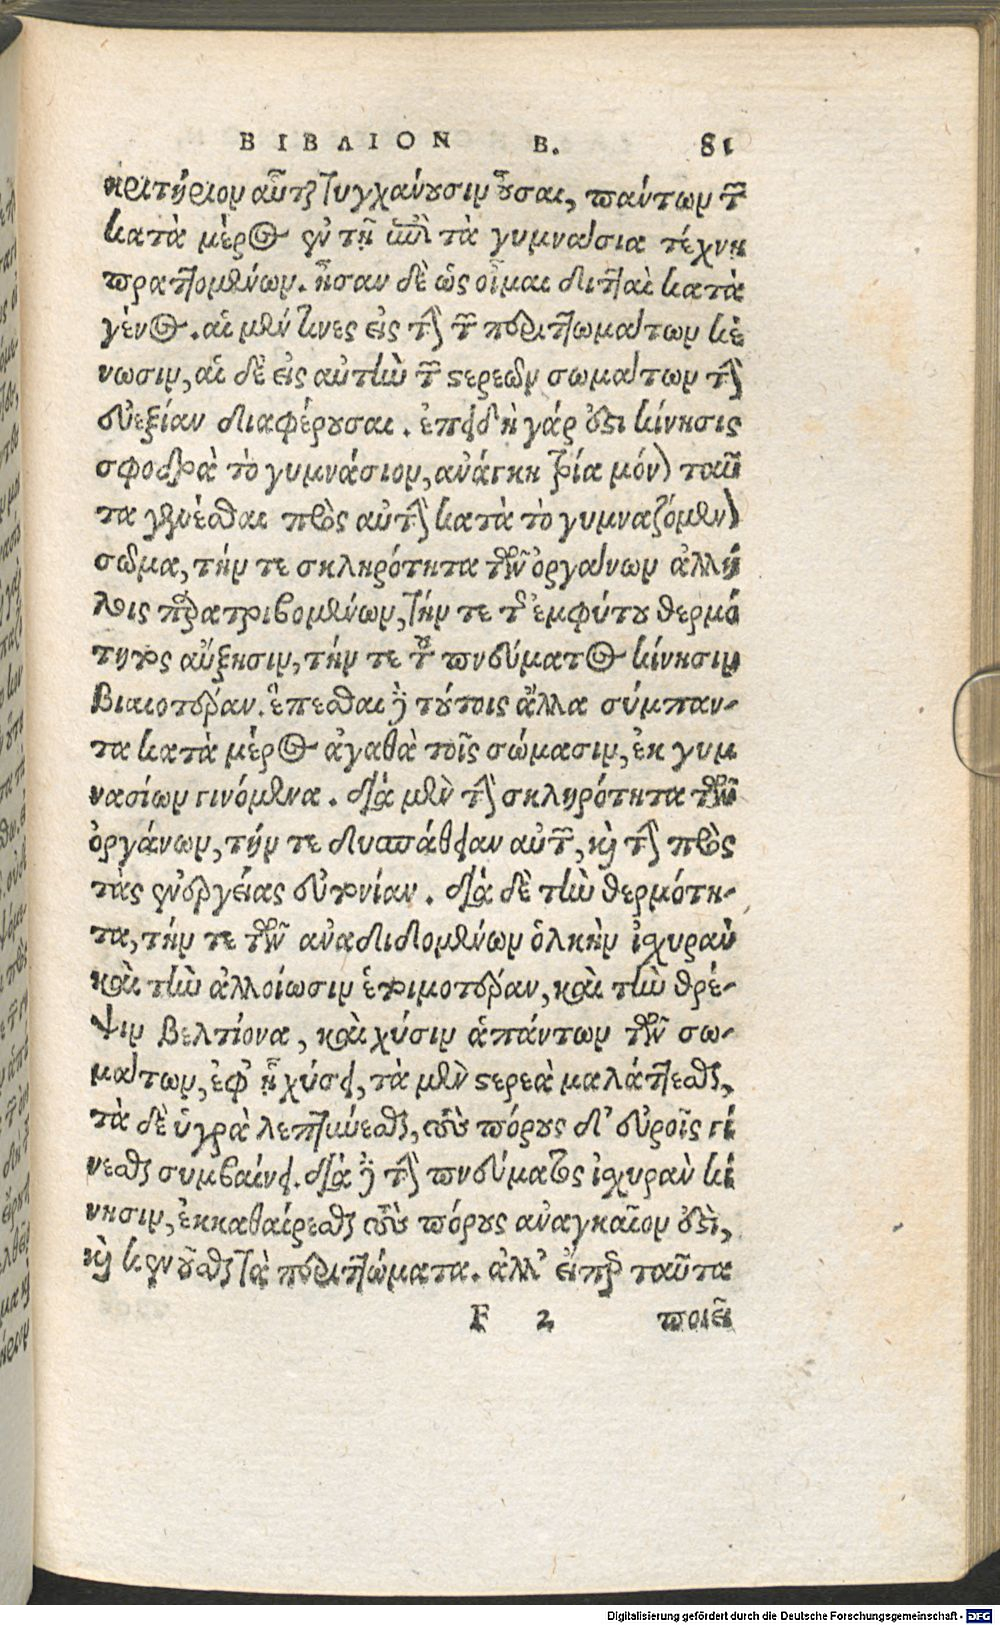 ΒΙΒΛΙΟΝ Β. 81
κριτήριον αὗται τυγχάνουσιν οὖσαι, πάντων τῶν
κατὰ μέρος ἐν τῇ περὶ τὰ γυμνάσια τέχνῃ
πραττομένων. ἦσαν δὲ ὡς οἶμαι διτταὶ κατὰ
γένος. αἱ μέν τινες εἰς τὴν τῶν περιττωμάτων κέ
νωσιν, αἱ δὲ εἰς αὐτὴν τῶν στερεῶν σωμάτων τὴν
εὐεξίαν διαφέρουσαι. ἐπειδὴ γάρ ἐστι κίνησις
σφοδρὰ τὸ γυμνάσιον, ἀνάγκη τρία μόνον ταῦ
τα γενέσθαι πρὸς αὐτὴν κατὰ τὸ γυμναζόμενον
σῶμα, τήν τε σκληρότητα τῶν ὀργάνων ἀλλή
λοις παρατριβομένων, τήν τε τῆς ἐμφύτου θερμό
τητος αὔξησιν, τήν τε τοῦ πνεύματος κίνησιν
βιαιοτέραν. ἕπεσθαι δὲ τούτοις ἄλλα σύμπαν-
τα κατὰ μέρος ἀγαθὰ τοῖς σώμασιν, ἐκ γυμ
νασίων γινόμενα. διὰ μὲν τὴν σκληρότητα τῶν
ὀργάνων, τήν τε δυσπάθειαν αὐτῶν, καὶ τὴν πρὸς
τὰς ἐνεργείας εὐτονίαν. διὰ δὲ τὴν θερμότη-
τα, τήν τε τῶν ἀναδιδομένων ὁλκὴν ἰσχυρὰν
καὶ τὴν ἀλλοίωσιν ἑτοιμοτέραν, καὶ τὴν θρέ-
ψιν βελτίονα, καὶ χύσιν ἁπάντων τῶν σω-
μάτων, ἐφ' ᾗ χύσει, τὰ μὲν στερεὰ μαλάττεσθαι,
τὰ δὲ ὑγρὰ λεπτύνεσθαι, τοὺς πόρους δ' εὐροῖς γί
νεσθαι συμβαίνει. διὰ δὲ τὴν πνεύματος ἰσχυρὰν κί
νησιν, ἐκκαθαίρεσθαι τοὺς πόρους ἀναγκαῖον ἐστὶ,
καὶ κενοῦσθαι τὰ περιττώματα. ἀλλ' εἴπερ ταῦτα
F 2 ποιεῖ
Digitalisierung gefördert durch die Deutsche Forschungsgemeinschaft - DFG